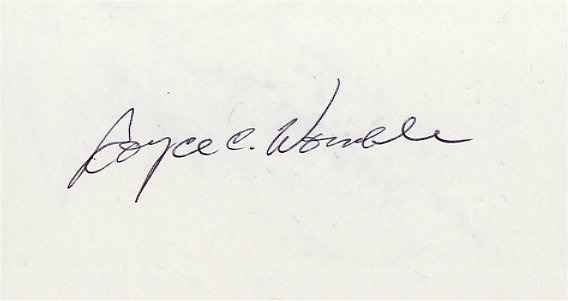 Royce C. Womble